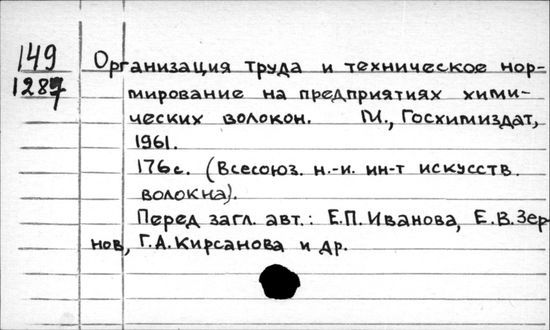 149
1287
Организация труда и техническое нор-
мирование на предприятиях хими-
ческих волокон. М., Госхимиздат,
1961.
176с. (Всесоюз. н.-и. ин-т искусств.
волокна).
Перед загл. авт.: Е.П. Иванова, Е.В. Зер
нов, Г.А. Кирсанова и др.